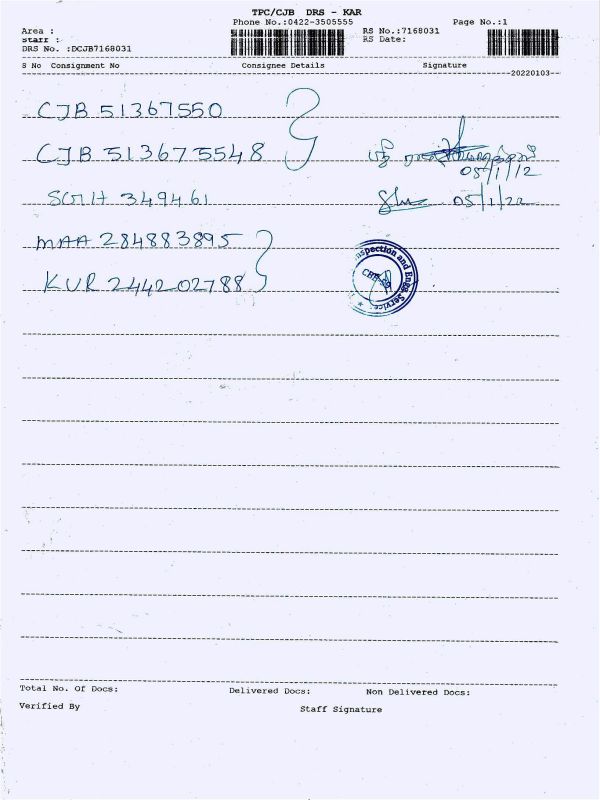 TPC/CJB DRS - KAR
Phone No.:0422-3505555 Page No.:1
Area : RS No.:7168031
Staff : RS Date:
DRS No. :DCJB7168031
S No Consignment No Consignee Details Signature
20220103
CJB 51367550
CJB 513675548
349461
05/1/12
05/1/22
MAA 284883895
KUR 244202788
Inspection and Engg. Services
Total No. Of Docs: Delivered Docs: Non Delivered Docs:
Verified By Staff Signature